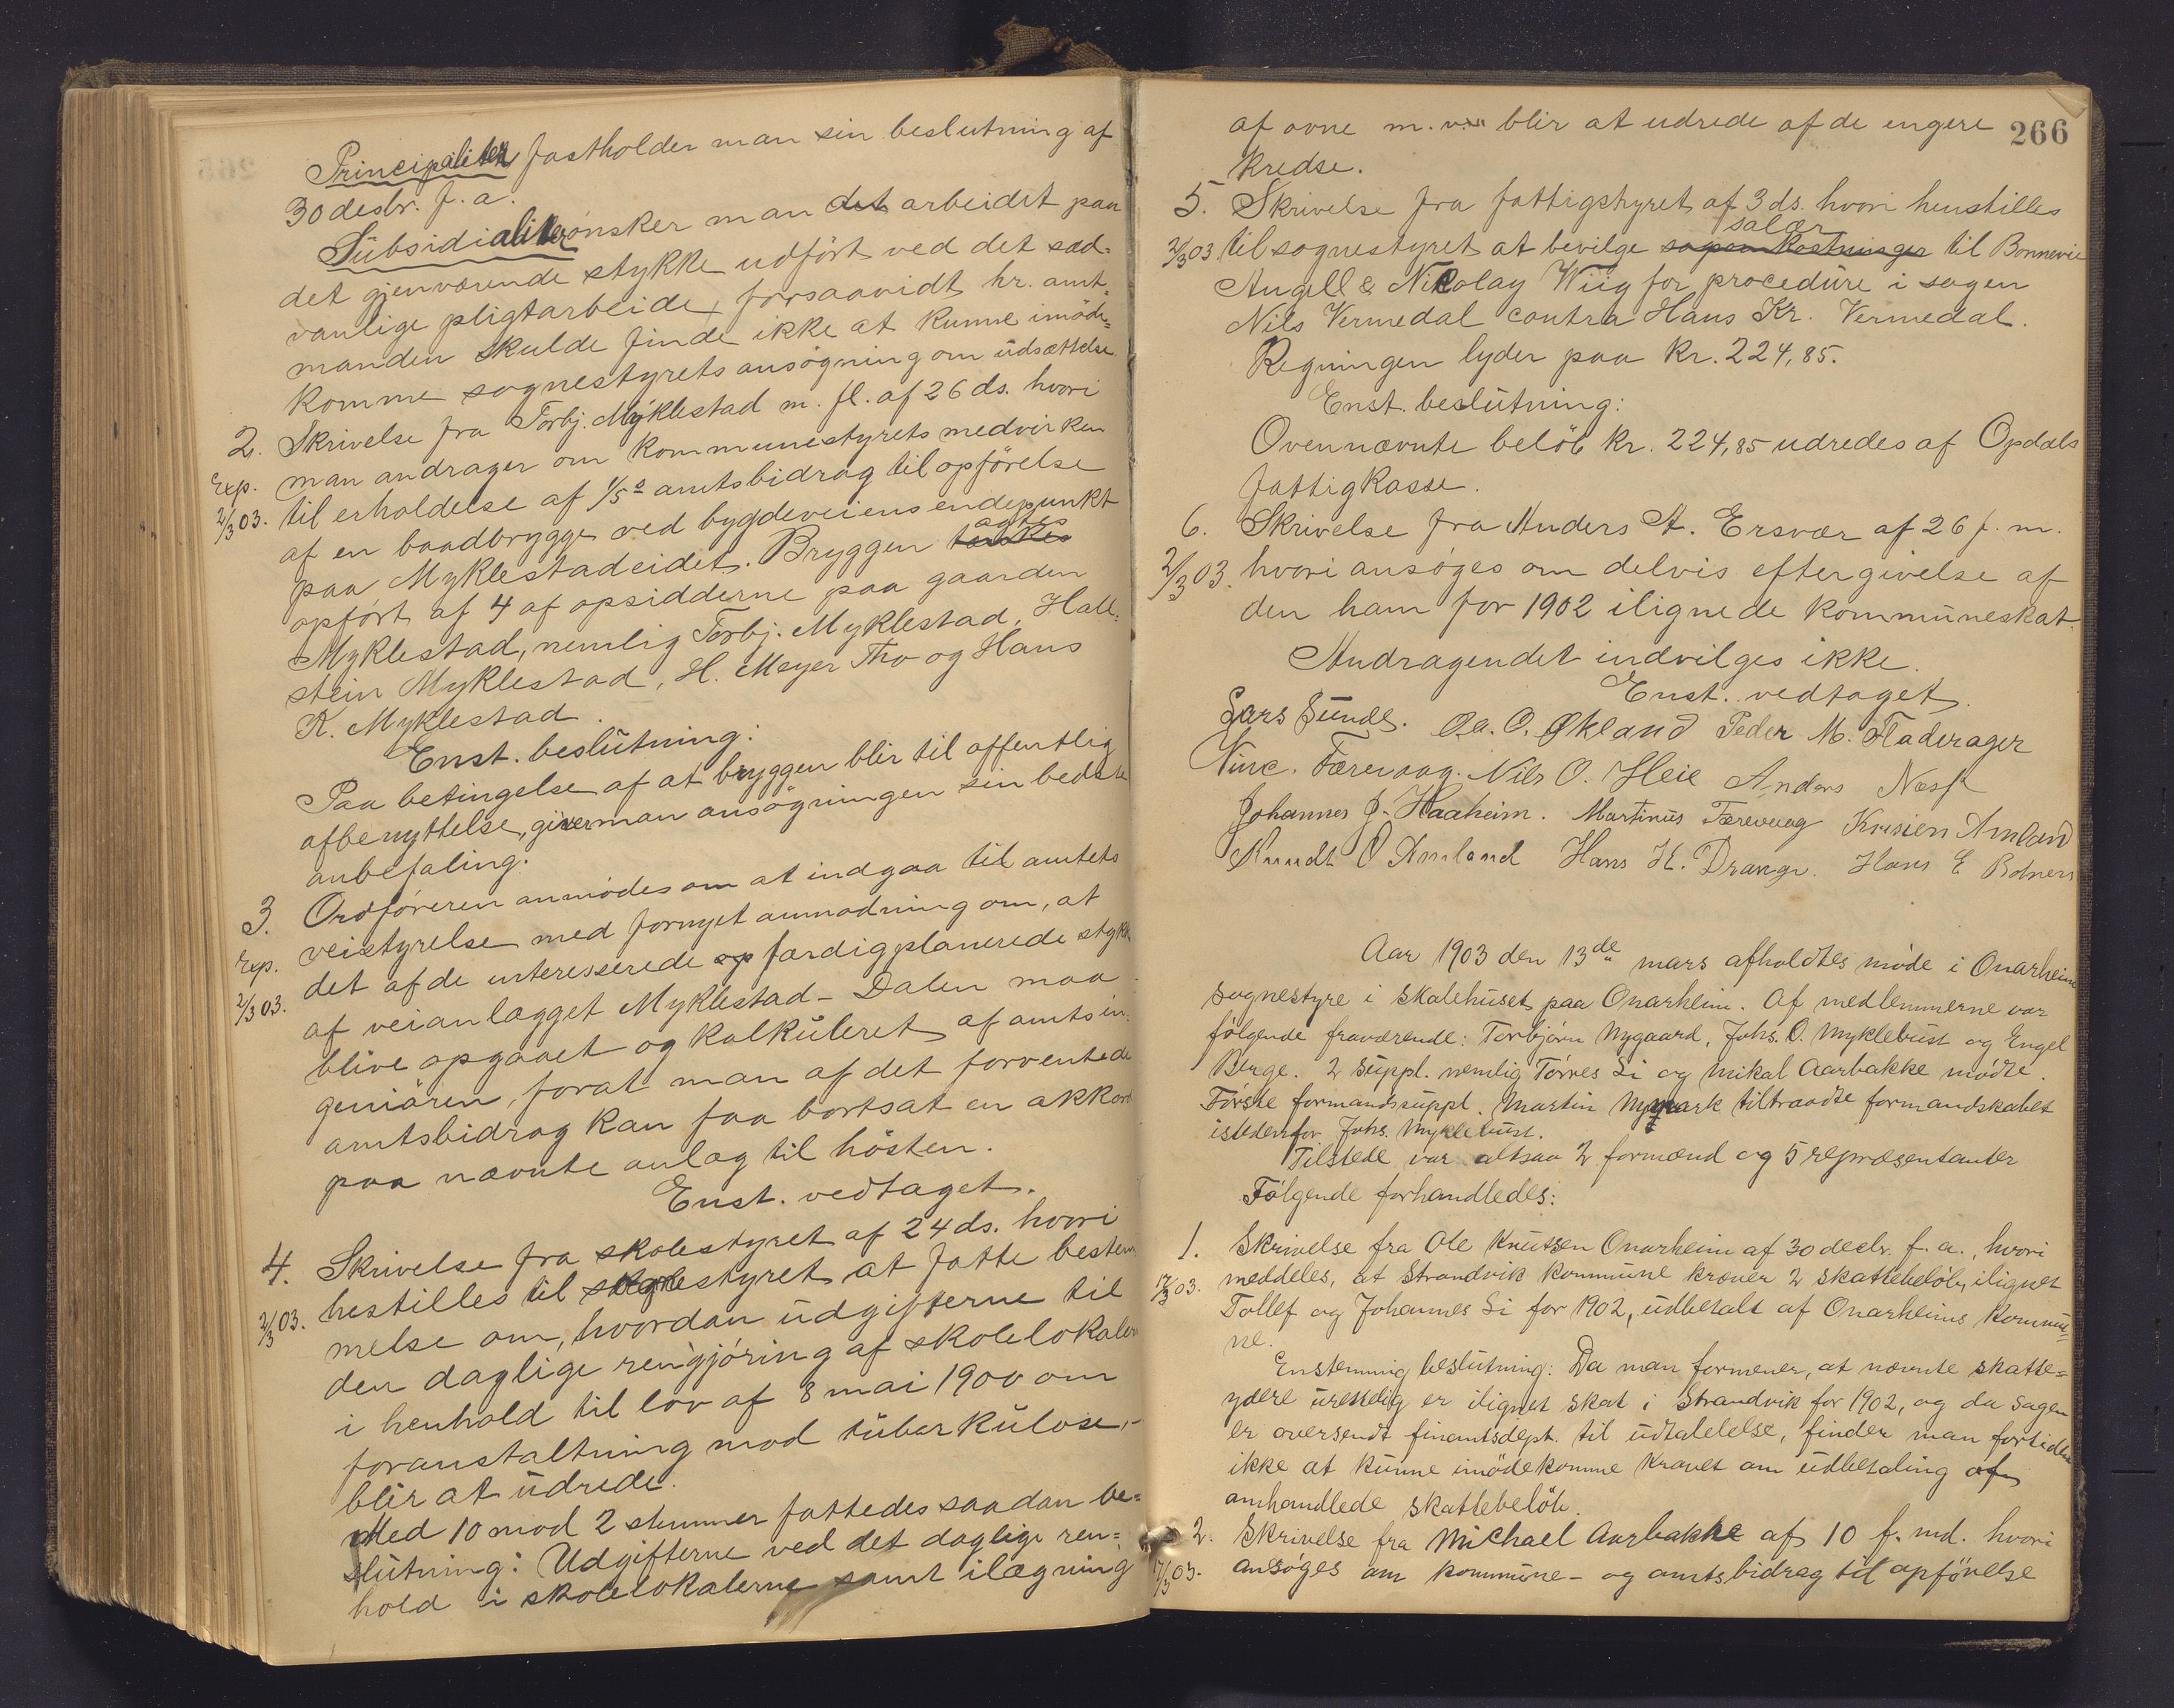 Principaliter fastholder man sin beslutning af
30 desbr. f. a.
Subsidialiter ønsker man det arbeidet paa
det gjenværende stykke udført ved det sæd-
vanlige pligtarbeide, forsaavidt hr. amt-
manden skulde finde ikke at kunne imøde-
komme sognestyrets ansøgning om udsættelse.
2. Skrivelse fra Torbj. Myklestad m. fl. af 26 ds. hvori
Exp. man andrager om kommunestyrets medvirken
2/3 03. til erholdelse af 1/5 amtsbidrag til opførelse
af en baadbrygge ved bygdeveiens endepunkt
paa Myklestadeidet. Bryggen tænkes agtes
opført af 4 af opsidderne paa gaarden
Myklestad, nemlig Torbj. Myklestad, Hall-
stein Myklestad, H. Meyer Tho og Hans
K. Myklestad.
Enst. beslutning:
Paa betingelse af at bryggen blir til offentlig
afbenyttelse, giver man ansøgningen sin bedste
anbefaling.
3. Ordføreren anmodes om at indgaa til amtets
Exp. veistyrelse med fornyet anmodning om, at
2/3 03. det af de interesserede op færdigplanerede stykke
af veianlægget Myklestad - Dalen maa
blive opgaaet og kalkuleret af amtsin-
geniøren, forat man af det forventede
amtsbidrag kan faa bortsat en akkord
paa nævnte anlæg til høsten.
Enst. vedtaget.
4. Skrivelse fra skolestyret af 24 ds. hvori
2/3 03. hestilles til sognestyret at fatte bestem-
melse om, hvordan udgifterne til
den daglige rengjøring af skolelokaler
i henhold til lov af 8 mai 1900 om
foranstaltning mod tuberkulose,-
blir at udrede.
Med 10 mod 2 stemmer fattedes saadan be-
slutning: Udgifterne ved det daglige ren-
hold i skolelokalerne samt ilægning
266
af ovne m. v. blir at udrede af de engere
kredse.
5. Skrivelse fra fattigstyret af 3 ds. hvori henstilles
2/3 03 til sognestyret at bevilge sagsomkostninger salær til Bonnevie
Angell & Nikolay Wiig for procedure i sagen
Nils Vermedal contra Hans Kr. Vermedal.
Regningen lyder paa kr. 224,85.
Enst. beslutning:
Ovennævnte beløb kr. 224,85 udredes af Opdals
fattigkasse.
6. Skrivelse fra Anders A. Ersvær af 26 f. m.
2/3 03. hvori ansøges om delvis eftergivelse af
den ham for 1902 ilignede kommuneskat.
Andragendet indvilges ikke.
Enst. vedtaget.
Lars Sunde. Aa. O. Økland Peder M. Fladerager
Vinc. Færevaag. Nils O. Heie Anders Næss
Johannes J. Haaheim. Martinus Færevaag Kristen Amland
Knudt O Amland Hans H. Drange. Hans E Botnen
Aar 1903 den 13de mars afholdtes møde i Onarheim
sognestyre i skolehuset paa Onarheim. Af medlemmerne var
følgende fraværende: Torbjørn Nygaard, Johs. O. Myklebust og Engel
Berge. 2 suppl. nemlig Tørres Li og Mikal Aarbakke mødte.
Første formandssuppl. Martin Nymark tiltraadte formandskabet
istedenfor Johs. Myklebust.
Tilstede var altsaa 2 formænd og 5 repræsentanter
Følgende forhandledes:
1. Skrivelse fra Ole Knutsen Onarheim af 30 decbr. f. a., hvori
17/3 03. meddeles, at Strandvik kommune kræver 2 skattebeløb, ilignet
Tollef og Johannes Li for 1902, udbetalt af Onarheims kommu-
ne.
Enstemmig beslutning: Da man formener, at nævnte skatte-
ydere urettelig er ilignet skat i Strandvik for 1902, og da sagen
er oversendt finantsdept. til udtalelelse, finder man fortiden
ikke at kunne imødekomme kravet om udbetaling af
omhandlede skattebeløb.
2. Skrivelse fra Michael Aarbakke af 10 f. md. hvori
17/3 03. ansøges om kommune- og amtsbidrag til opførelse